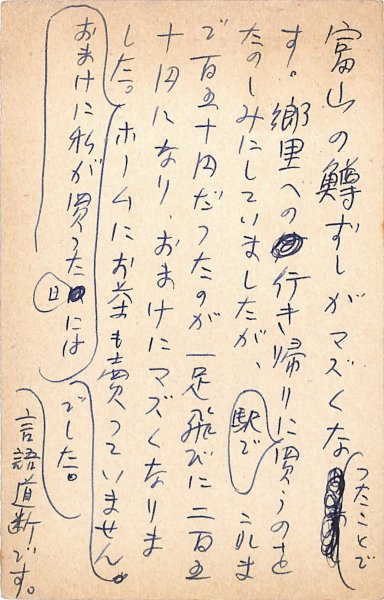 富山の鱒ずしがマズくなつたことで
す。郷里への行き帰りに駅で買うのを
たのしみにしていましたが、これま
で百五十円だつたのが一足飛びに二百五
十円になり、おまけにマズくなりま
した。ホームにお茶も賣つていません
でした。
おまけに私が買つた日には
言語道断です。